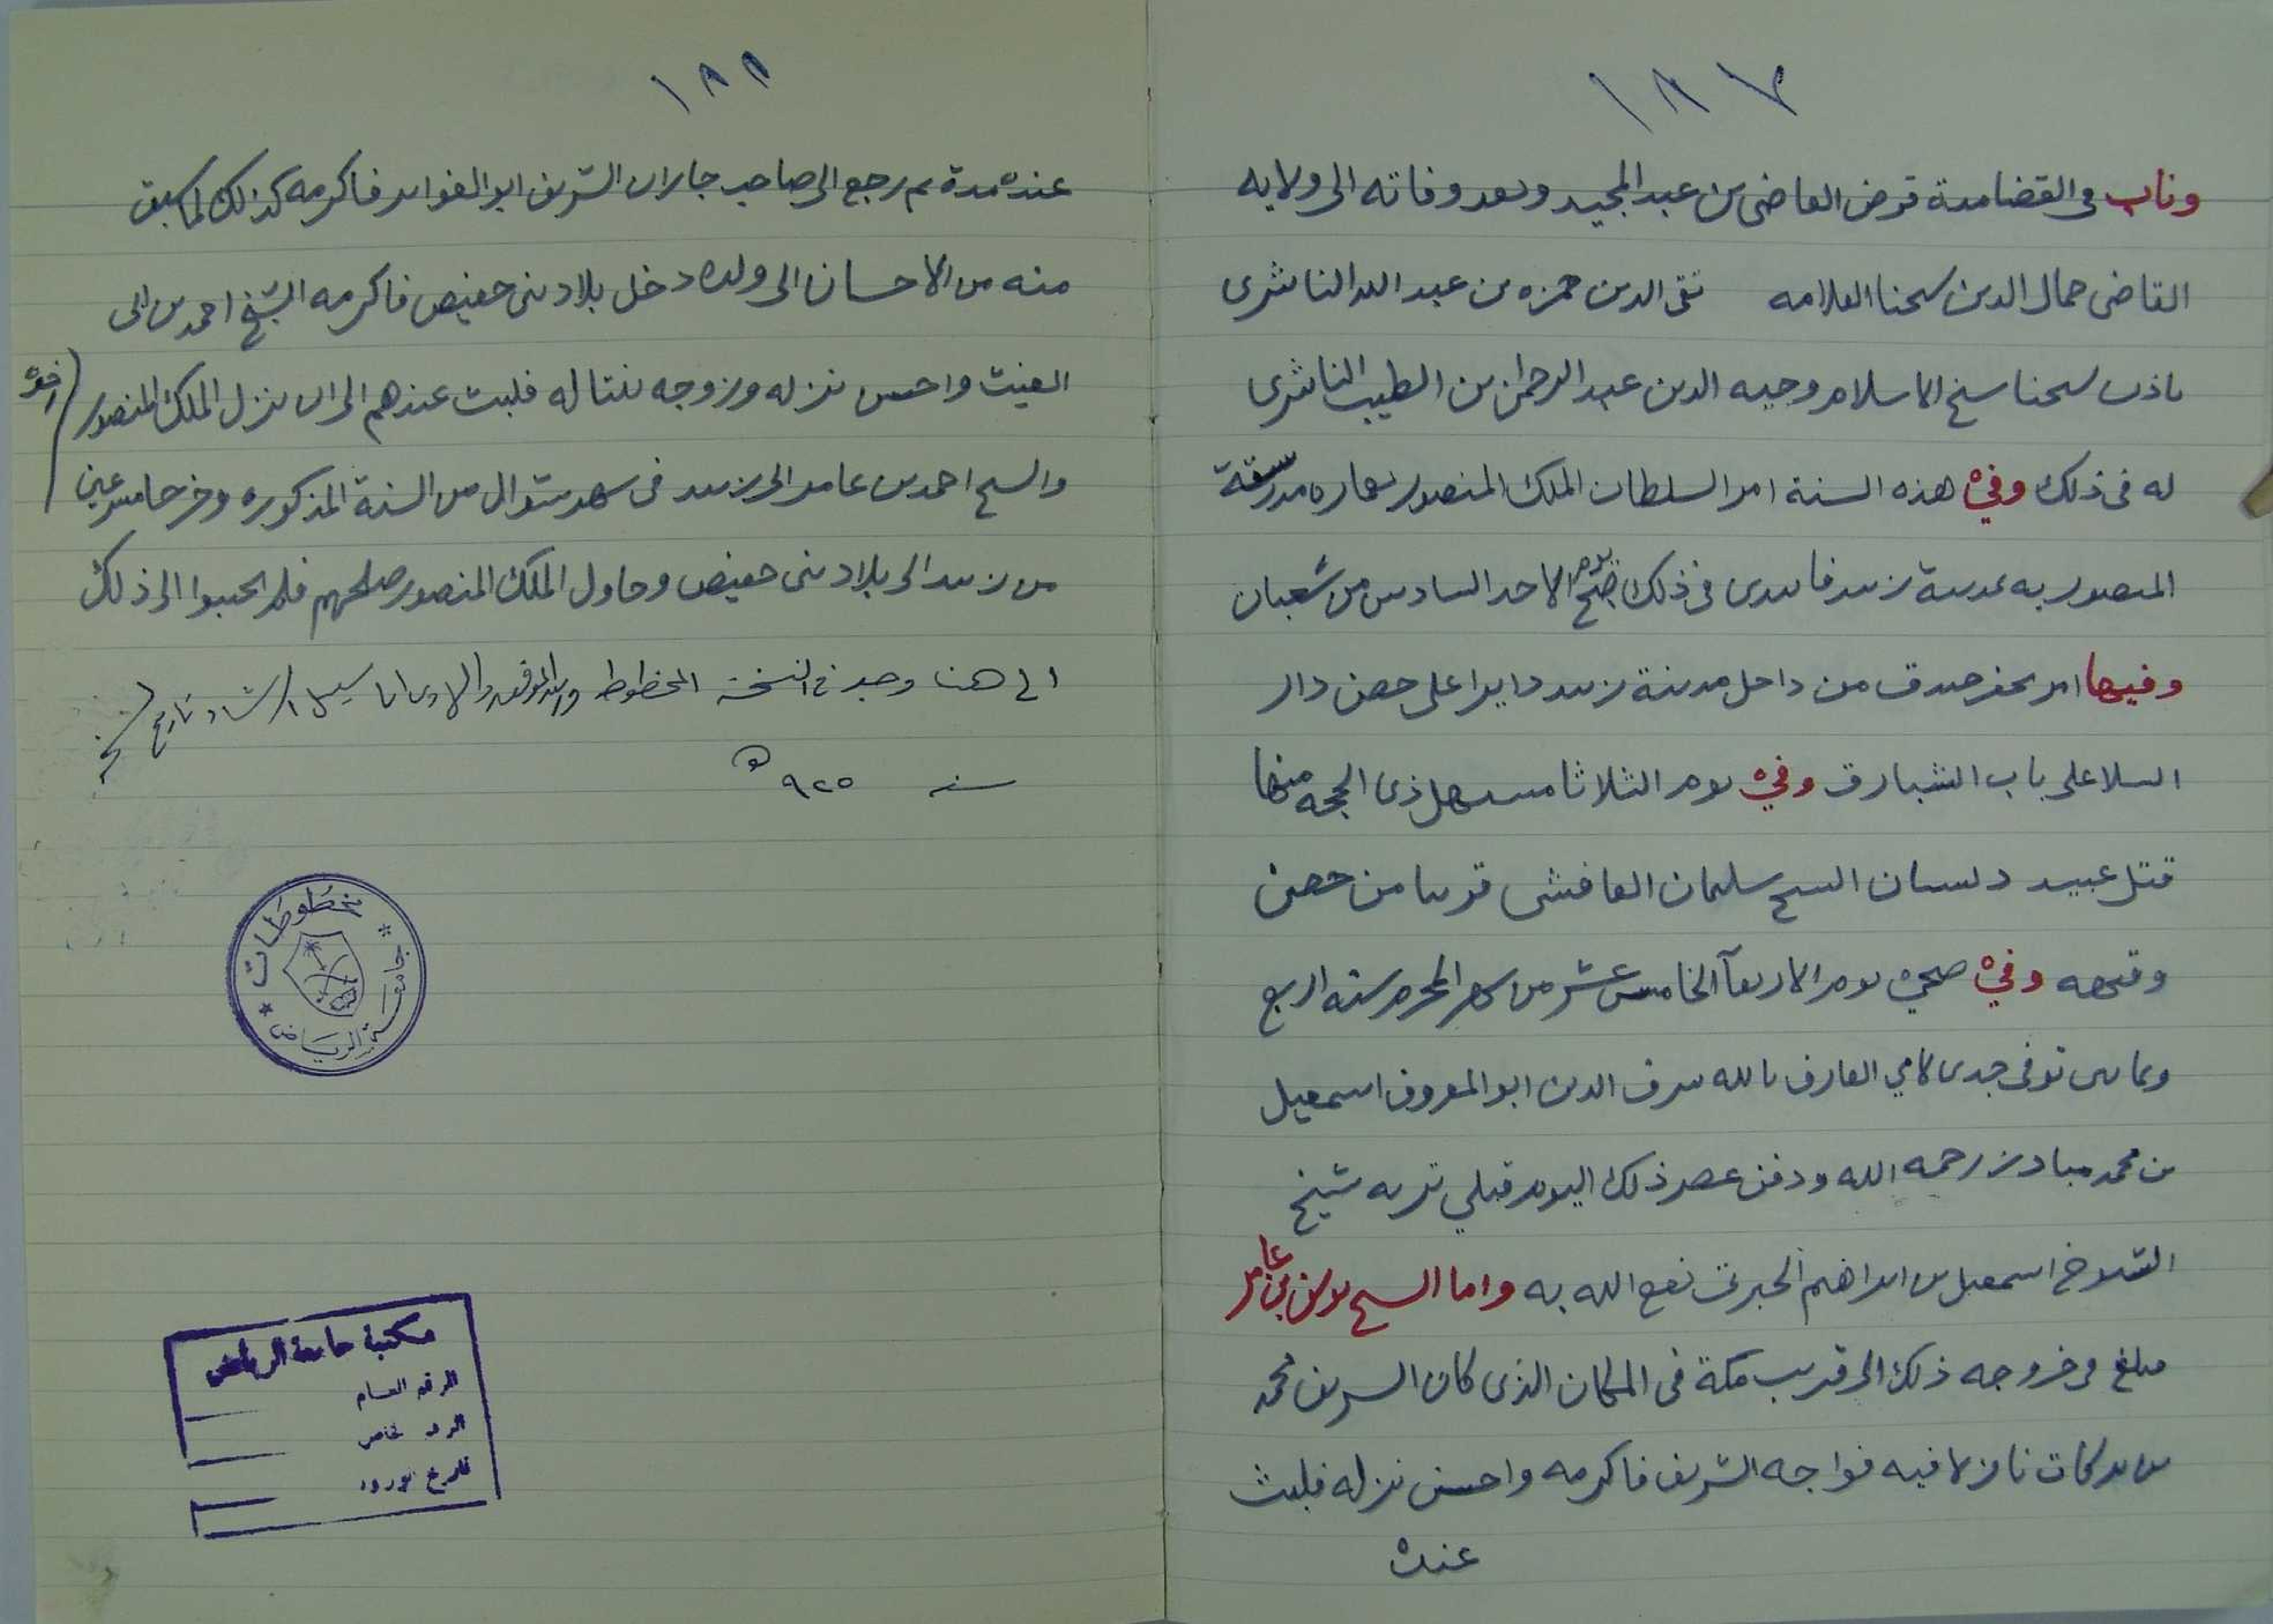 ١٨٧
وناب فى القضا مدة مرض القاضى بن عبد المجيد وبعد وفاته الى ولايه
القاضى جمال الدين شيخنا العلامه تقى الدين حمزه بن عبد الله الناشرى
باذن شيخنا شيخ الاسلام وجيه الدين عبد الرحمن بن الطيب الناشرى
له فى ذلك وفي هذه السنة امر السلطان الملك المنصور بعماره مدرسة
المنصوريه بمدينة زبيد فابتدى فى ذلك ضحى يوم الاحد السادس من شعبان
وفيها امر بحفر خندق من داخل مدينة زبيد دايرا على حصن دار
السلا على باب الشبارق وفي يوم الثلاثا مستهل ذى الحجه منها
قتل عبيد الشيخ سليمان قريبا من حصن
وفي ضحى يوم الاربعآ الخامس عشر من شهر المحرم سنه اربع
وثمانين توفى جدى لامي العارف بالله شرف الدين ابو المعروف اسمعيل
بن محمد مبارز رحمه الله ودفن عصر ذلك اليوم قبلي تربه شيخ
الشيوخ اسمعيل بن ابراهيم الجبرتى نفع الله به واما الشيخ يوسف بن عامر
فبلغ فى خروجه ذلك الى قريب مكة فى المكان الذى كان الشريف محمد
بن بركات نازلا فيه فواجه الشريف فاكرمه واحسن نزله فلبث
عنده
١٨٨
عنده مدة ثم رجع الى صاحب جازان الشريف ابو الغواير فاكرمه كذلك لما سبق
منه من الاحسان الى ولده دخل بلاد بنى حفيص فاكرمه الشيخ احمد بن ابى
الغيث واحسن نزله وزوجه بنتا له فلبث عندهم الى ان نزل الملك المنصور واخوه
والشيخ احمد بن عامر الى زبيد فى شهر شوال من السنة المذكوره وخرجا مسرعين
من زبيد الى بلاد بنى حفيص وحاول الملك المنصور صلحهم فلم يجيبوا الى ذلك
الى هنا وجد في النسخة المخطوط والله الموفق والهادى الى سبيل الرشاد تاريخ
سنه ٩٢٥ هـ
مخطوطات
جامعة الرياض
مكتبة جامعة الرياض
الرقم العام
الرقم الخاص
تاريخ الورود